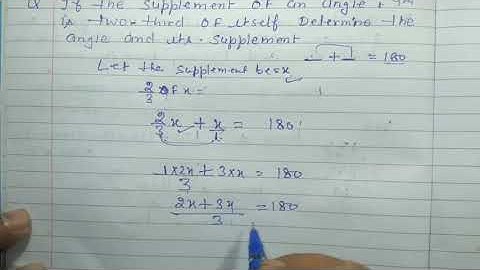 Q If the supplement of an angle
is two-third of itself Determine the
angle and its supplement
_ + _ = 180
Let the supplement be = x
2/3 of x =
2/3 x + x/1 = 180
1×2x + 3×x / 3 = 180
2x + 3x / 3 = 180